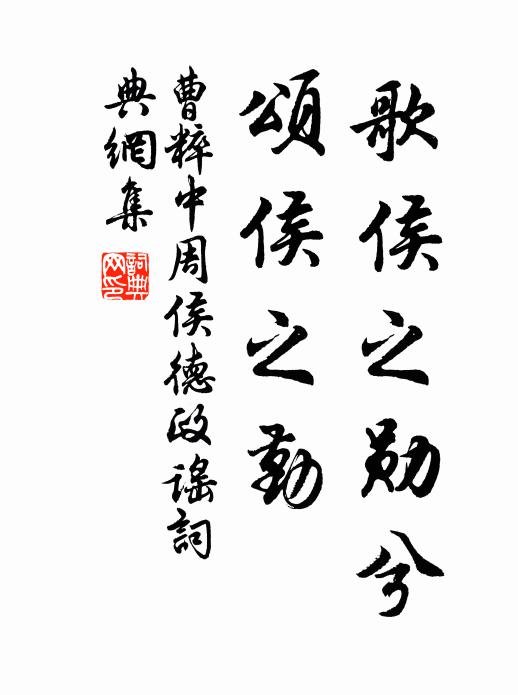 歌侯之勛兮
頌侯之勤
曹粹中周侯德政謠詞
典網集
詞典
网印